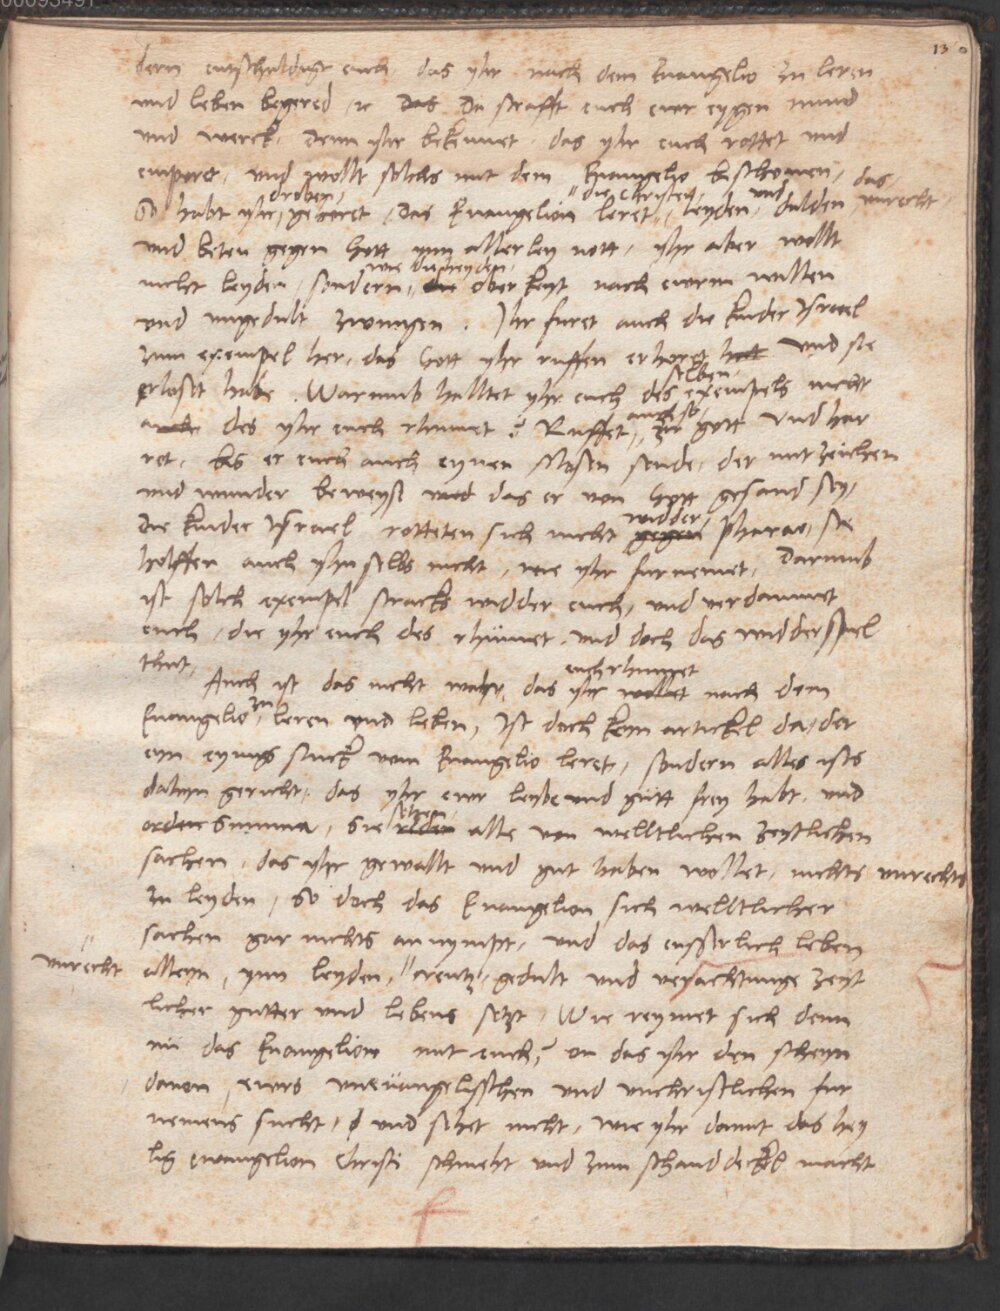 00093497
13
dern entschuldigt euch, das yhr nach dem Euangelio zu leren
und leben begered ꝛc Das Da strafft euch ewr eygen mund
und werck. Denn yhr bekennet, das yhr euch rottet und
emporet, und wollt solchs mit dem Euangelio beschonen, das
droben, die Christen, und unrecht
So habt yhr, gehoret, Das Euangelion leret, leyden, dulden
und beten gegen Gott ynn allerley nott, yhr aber wollt
wie die heyden,
nicht leyden, sondern, die oberkeyt nach ewrm willen
und ungedult zwingen. Ihr furet auch die kinder Israel
zum exempel her, das Gott yhr ruffen erhoret hatt und sie
selben
erloset habe. Warumb halltet yhr euch des exempels nicht
auch so
des yhr euch rhumet? Ruffet, zu gott und har
ret, bis er euch auch eynen Mosen sende, der mit zeichen
und wunder beweyse und das er von Gott gesand sey,
widder
Die kinder Israel rotteten sich nicht gegen pharao, sie
holffen auch yhn selbs nicht, wie yhr furnemet, Darumb
ist solch exempel stracks widder euch, und verdammet
euch, die yhr euch des rhümet, und doch das widderspiel
thut,
euch rhumet
Auch ist das nicht wahr, das yhr wollet nach dem
zu
Euangelio leren und leben, Ist doch keyn artickel da, der
eyn eynigs stuck vom Euangelio leret, sondern alles ists
dahyn gericht, das yhr ewr leybe und gütt frey habt, und
sagen
summa, Sie reden alle von welltlichen zeytlichen
sachen, das yhr gewallt und gut haben wollet, nichts unrechts
zu leyden, So doch das Euangelion sich welltlicher
sachen gar nichts annympt, und das eusserlich leben
unrecht alleyn, ynn leyden, creutz, gedult und verachtunge zeyt
licher gutter und lebens setzt, Wie reymet sich denn
nu das Euangelion mit euch? on das yhr den scheyn
davon, ewrs uneuangelisschen und unchristlichen fur
nemens sucht, und sehet nicht, wie yhr damit das hey
lig euangelion Christi schmeht und zum schanddeckel macht